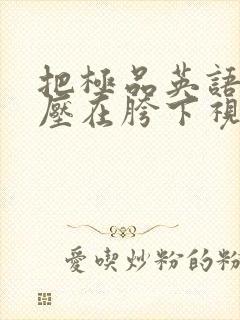 把極品英語
壓在胯下視
愛喫炒粉的粉